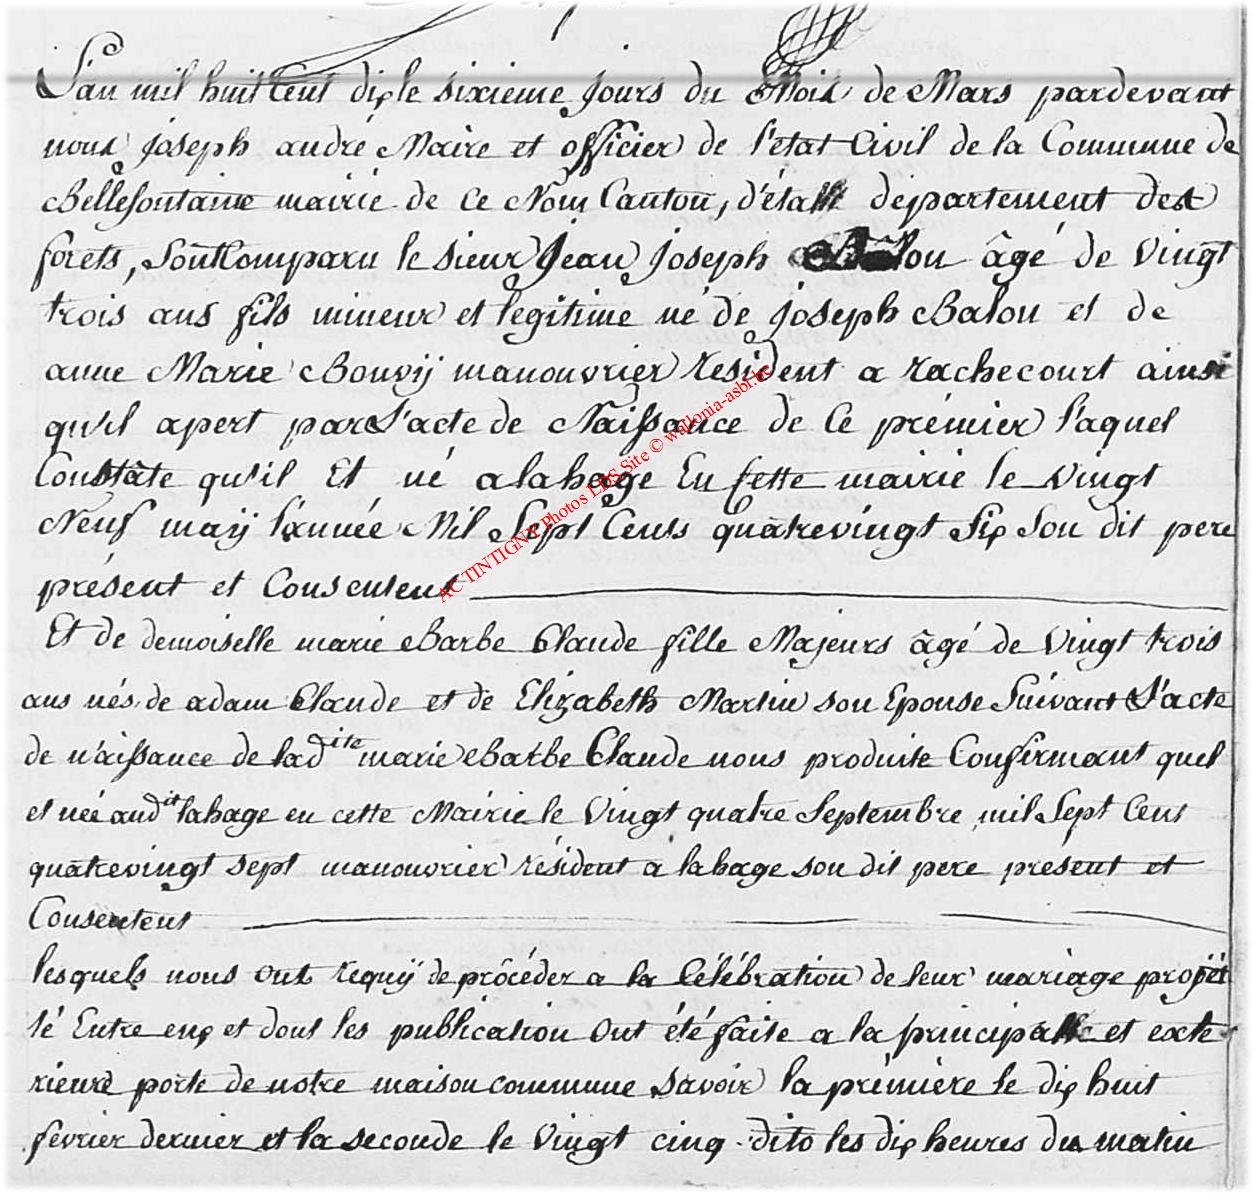 L'an mil huit Cent dix le sixieme Jours du Mois de Mars pardevant
nous Joseph andré Maire et officier de l'état Civil de la Commune de
Bellefontaine mairie de Ce Nom Canton, d'étalle département des
forets, sont Comparu le sieur Jean Joseph Balon âgé de vingt
trois ans fils mineur et legitime né de Joseph Balon et de
anne Marie Bouvÿ manouvrier résident a rachecourt ainsi
qu'il apert par L'acte de Naissance de Ce prémier l'aquel
Constâte qu'il Et né a lahage En Cette mairie le vingt
Neuf maÿ l'année Mil Sept Cents quatrevingt Six son dit pere
présent et Consentent
Et de demoiselle marie Barbe Claude fille Majeurs âgé de vingt trois
ans nés de adam Claude et de Elizabeth Martin son Epouse Suivant L'acte
de n'aissance de ladite marie Barbe Claude nous produite Confirmant quel
et née audit lahage en cette Mairie le vingt quatre Septembre mil Sept Cent
quatrevingt sept manouvrier résident a lahage son dit pere présent et
Consentent
lesquels nous ont requÿ de procéder a la Célébration de leur mariage projet
té Entre eux et dont les publication ont été faite a la principalle et exte
rieure porte de notre maison commune savoir la prémiere le dix huit
fevrier dernier et la seconde le vingt cinq dito les dix heures du matin
AC TINTIGNY Photos LDS Site © wallonia-asbl.be